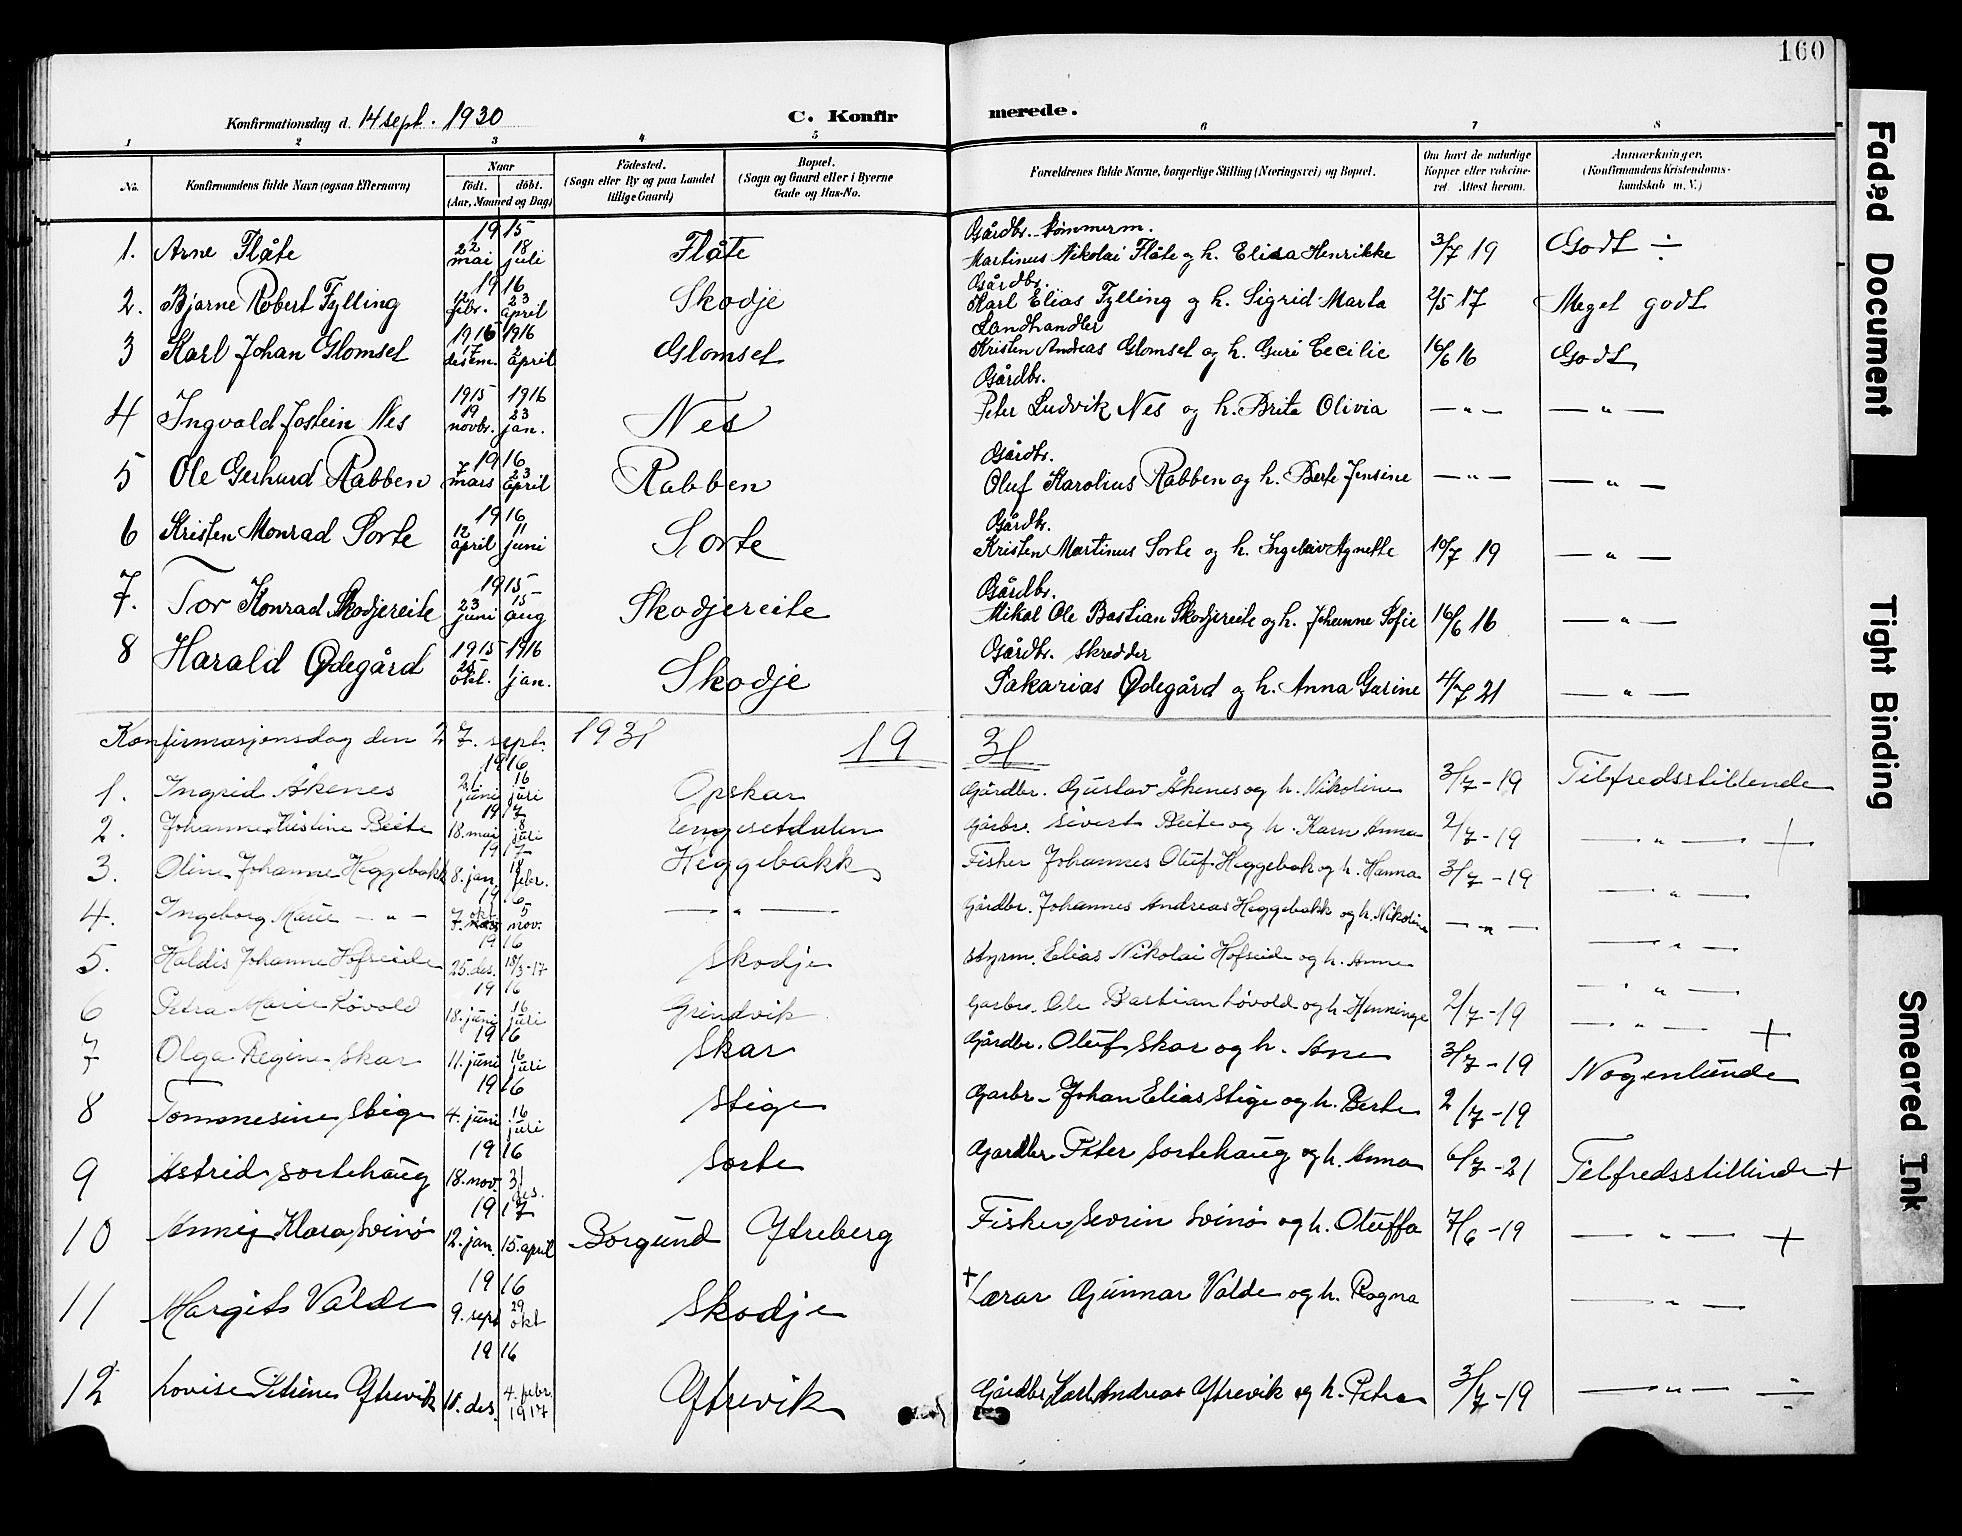 160
Konfirmationsdag d. 14 sept. 1930 C. Konfirmerede.
1 2 3 4 5 6 7 8
No. Konfirmandens fulde Navn (ogsaa Efternavn) Naar født. døbt. (Aar, Maaned og Dag) Fødested. (Sogn eller By og paa Landet tillige Gaard) Bopæl. (Sogn og Gaard eller i Byerne Gade og Hus-No. Forældrenes fulde Navne, borgerlige Stilling (Næringsvei) og Bopæl. Om havt de naturlige Kopper eller vakcineret. Attest herom. Anmærkninger. (Konfirmandens Kristendomskundskab m. V.)
1. Arne Flåte 1915 22 mai 18 juli Flåte Gårdbr. tømmerm. Martinus Nikolai Flåte og h. Elisa Henrikke 3/7 19 Godt ÷
2. Bjarne Robert Fylling 1916 12 febr. 23 april Skodje Gårdbr. Karl Elias Fylling og h. Sigrid Marta 2/5 17 Meget godt
3 Karl Johan Glomset 1915 17 desem. 1916 2 april Glomset Landhandler Kristen Andreas Glomset og h. Guri Cecilie 16/6 16 Godt
4 Ingvald Jostein Nes 1915 19 novbr. 1916 23 jan. Nes Gårdbr. Peter Ludvik Nes og h. Brita Olivia — " — — " —
5 Ole Gerhard Rabben 1916 7 mars 23 april Rabben Gårdbr. Oluf Karolius Rabben og h. Berte Jensine — " — — " —
6 Kristen Monrad Sorte 1916 12 april 11 juni Sorte Gårdbr. Kristen Martinus Sorte og h. Ingebrig Agnette 10/7 19 — " —
7. Tor Konrad Skodjereite 1915 23 juni 15 aug Skodjereite Gårdbr. Mikal Ole Bastian Skodjereite og h. Johanne Sofie 16/6 16 — " —
8 Harald Ødegård 1915 25 okt. 1916 1 jan. Skodje Gårdbr. skredder Sakarias Ødegård og h. Anna Gurine 4/7 21 — " —
Konfirmasjonsdag den 27. sept. 1931 1931
1. Ingrid Åkenes 1916 21 juni 16 juli Opskar Gårdbr. Gustav Åkenes og h. Nikoline 3/7-19 Tilfredsstillende
2. Johanne Kristine Beite 1917 18. mai 8 juli Engesetdalen Gårbr. Sivert Beite og h. Karn Anna 2/7-19 — " — +
3. Oline Johanne Heggebakk 1917 8. jan. 18 febr. Heggebakk Fisker Johannes Oluf Heggebak og h. Hanna 3/7-19 — " —
4. Ingeborg Marie — " — 1916 7. okt 5 nov. — " — Gårdbr. Johannes Andreas Heggebakk og h. Nikoline — " — — " —
5. Haldis Johanne Hofseide 1916 25. des. 18/3-17 Skodje styrm. Elias Nikolai Hofseide og h. Anne — " —
6 Petra Marie Løvold 1916 18. juni 16 juli Grindvik Garbr. Ole Bastian Løvold og h. Henninge 2/7-19 — " — +
7 Olga Regine Skar 1916 11. juni 16 juli Skar Gårdbr. Oluf Skar og h. Ane 3/7-19 Nogenlunde
8 Tommesine Stige 1916 4. juni 16 juli Stige Garbr. Johan Elias Stige og h. Berte 2/7-19
9 Astrid Sortehaug 1916 18. nov. 31 des. Sorte Gardbr. Peter Sortehaug og h. Anna 6/7-21 Tilfredsstillende +
10 Annij Klara Svinø 1917 12. jan. 15. april Borgund Ytreberg Fisker Sevrin Svinø og h. Oluffa 7/6-19 — " — +
11 Margit Valde 1916 9. sept 29 okt Skodje + Lærar Gunnar Valde og h. Ragna — " —
12 Lovise Petrine Ytrevik 1916 10. des. 4. febr. 1917 Ytrevik Gårdbr. Karl Andreas Ytrevik og h. Petra 3/7-19 — " — ÷
Faded Document
Tight Binding
Smeared Ink